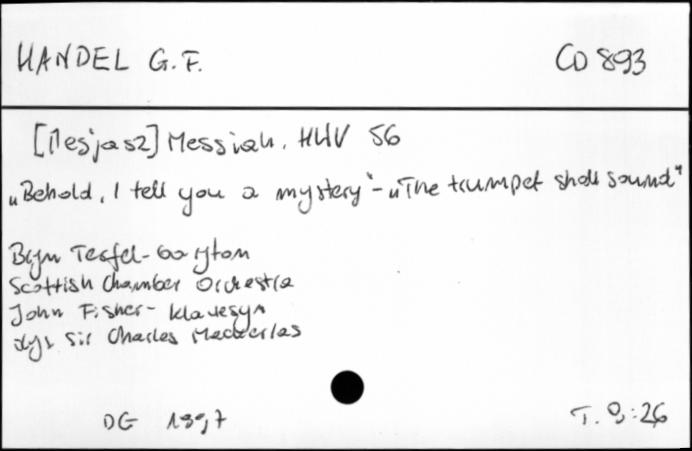 HANDEL G.F. CD 893
[Mesjasz] Messiah. HWV 56
„Behold, I tell you a mystery" - „The trumpet shall sound"
Bryn Terfel - baryton
Scottish Chamber Orchestra
John Fisher - klawesyn
dyr. Sir Charles Mackerras
DG 1997 T. 9:26